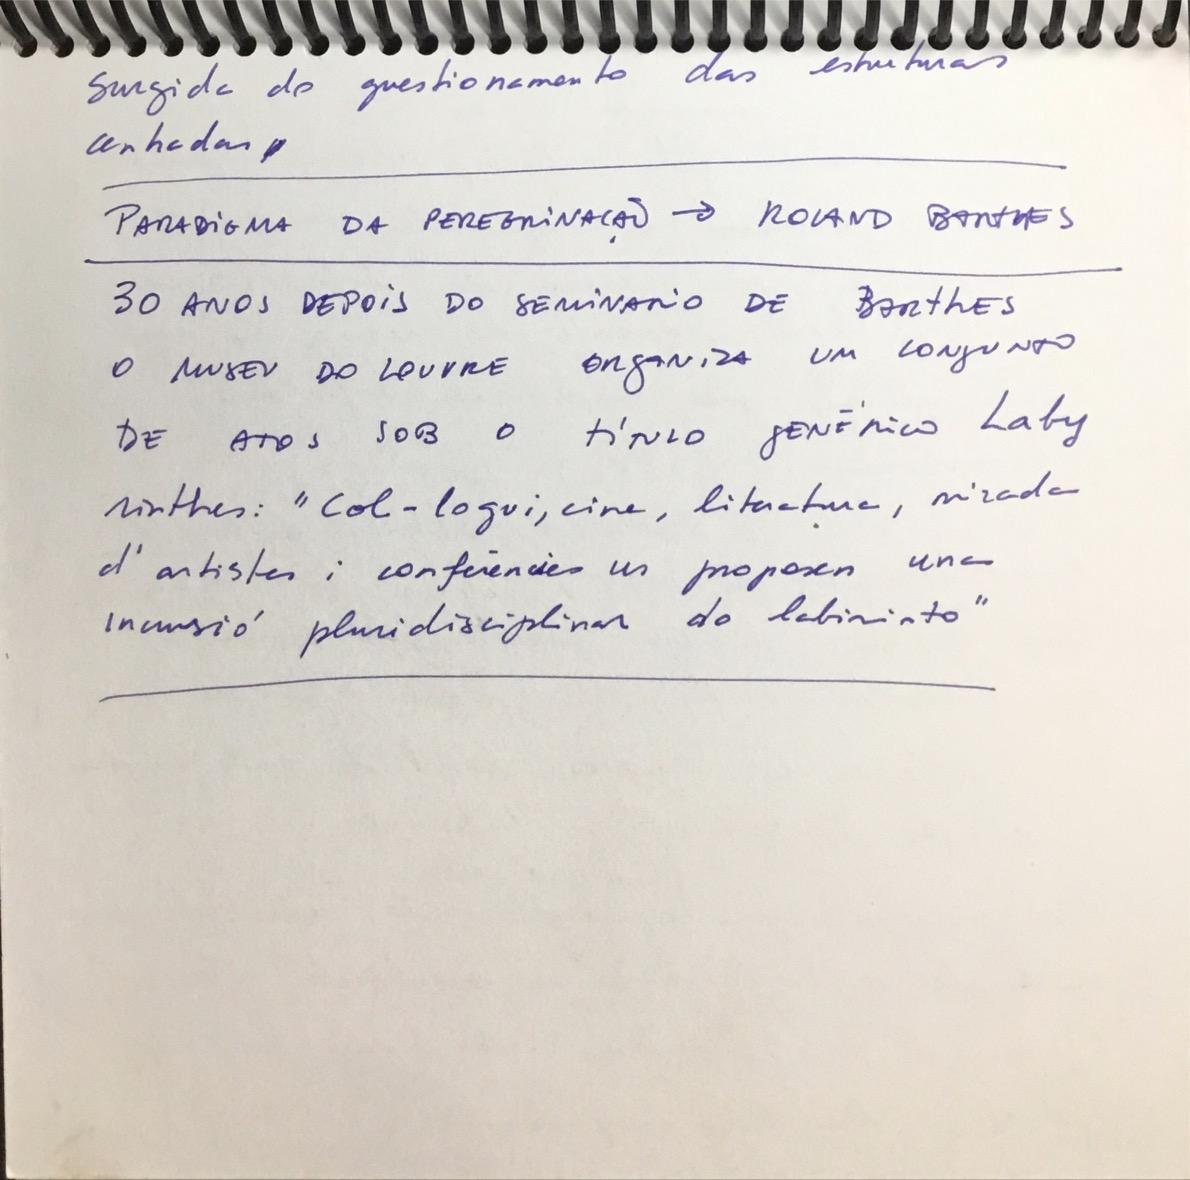 surgida do questionamento das estruturas
centradas
PARADIGMA DA PEREGRINAÇÃO → ROLAND BARTHES
30 ANOS DEPOIS DO SEMINARIO DE BARTHES
O MUSEU DO LOUVRE ORGANIZA UM CONJUNTO
DE ATOS SOB O TÍTULO GENÉRICO Laby
rinthes: "Col-loqui, cine, literatura, mirada
d'artistes i conferències us proposen una
incursió pluridisciplinar do labirinto"